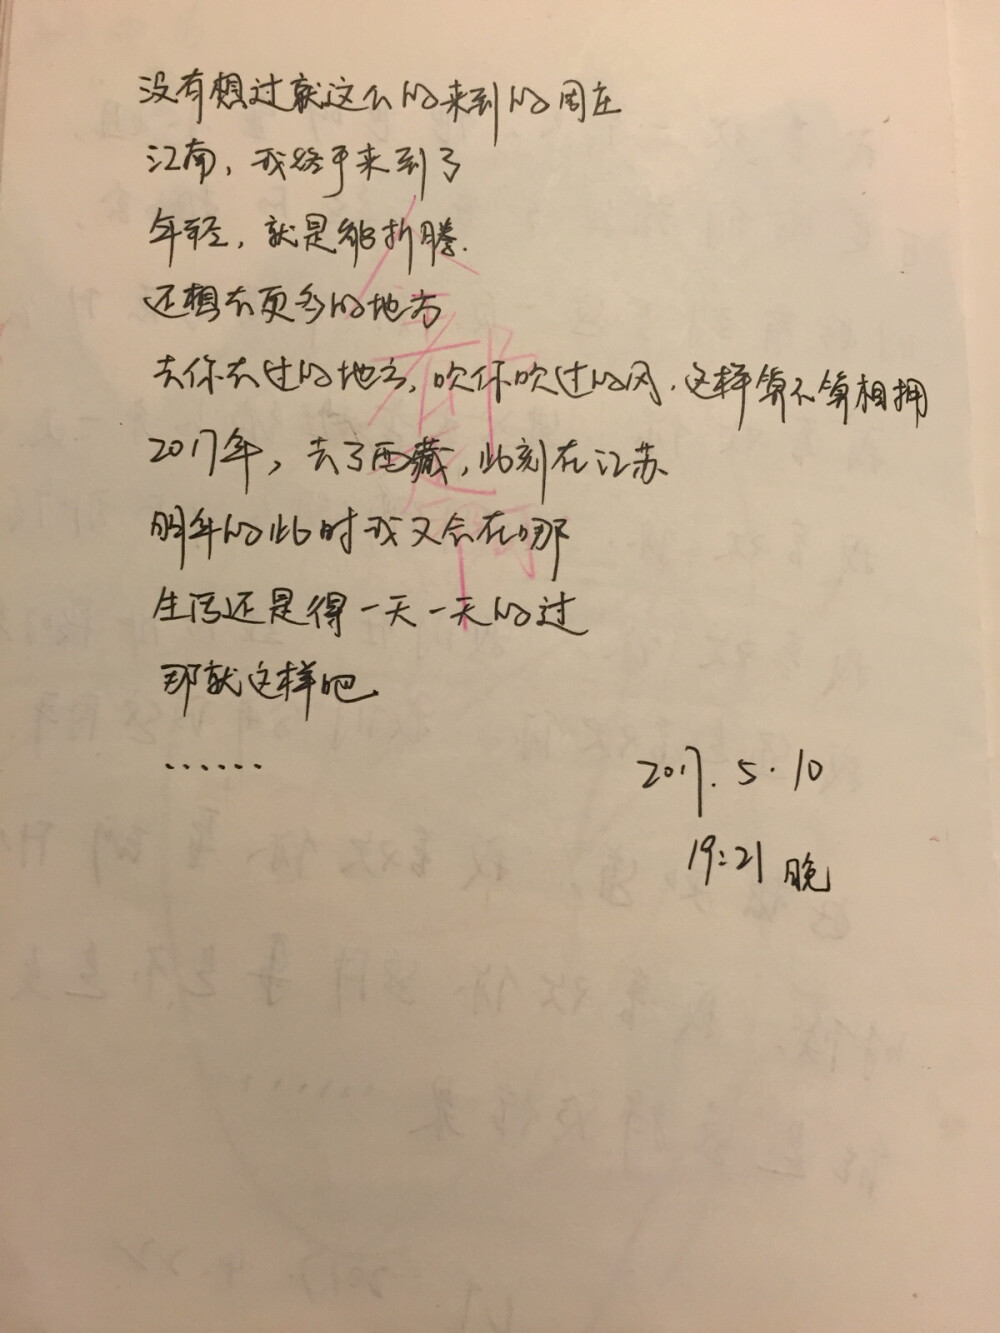 没有想过就这么的来到的周庄
江南，我终于来到了
年轻，就是能折腾.
还想去更多的地方
去你去过的地方，吹你吹过的风．这样算不算相拥
2017年，去了西藏，此刻在江苏
明年的此时我又会在哪
生活还是得一天一天的过
那就这样吧
······
2017.5.10
19:21 晚